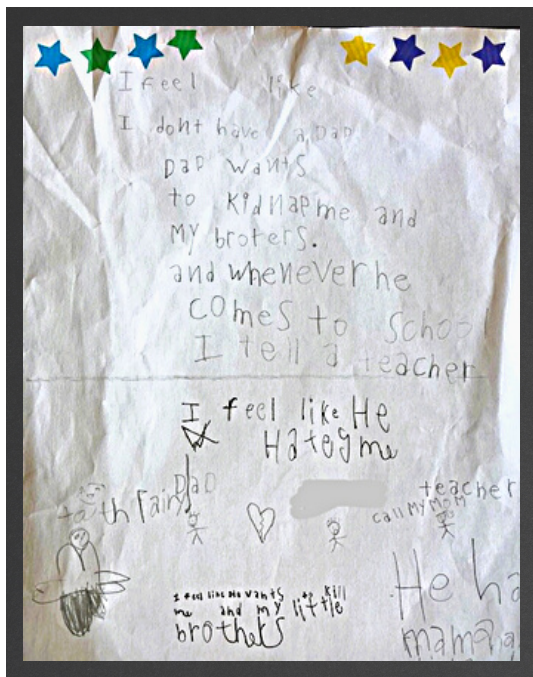 I Feel like
I dont have a Dad
Dad wants
to kidnap me and
My broters.
and whenever he
comes to School
I tell a teacher
I feel like He
Hates me
Dad
tooth fairy
teacher
call My MOM
I feel like He wants to kill
me and my little
brothers
He ha
mama